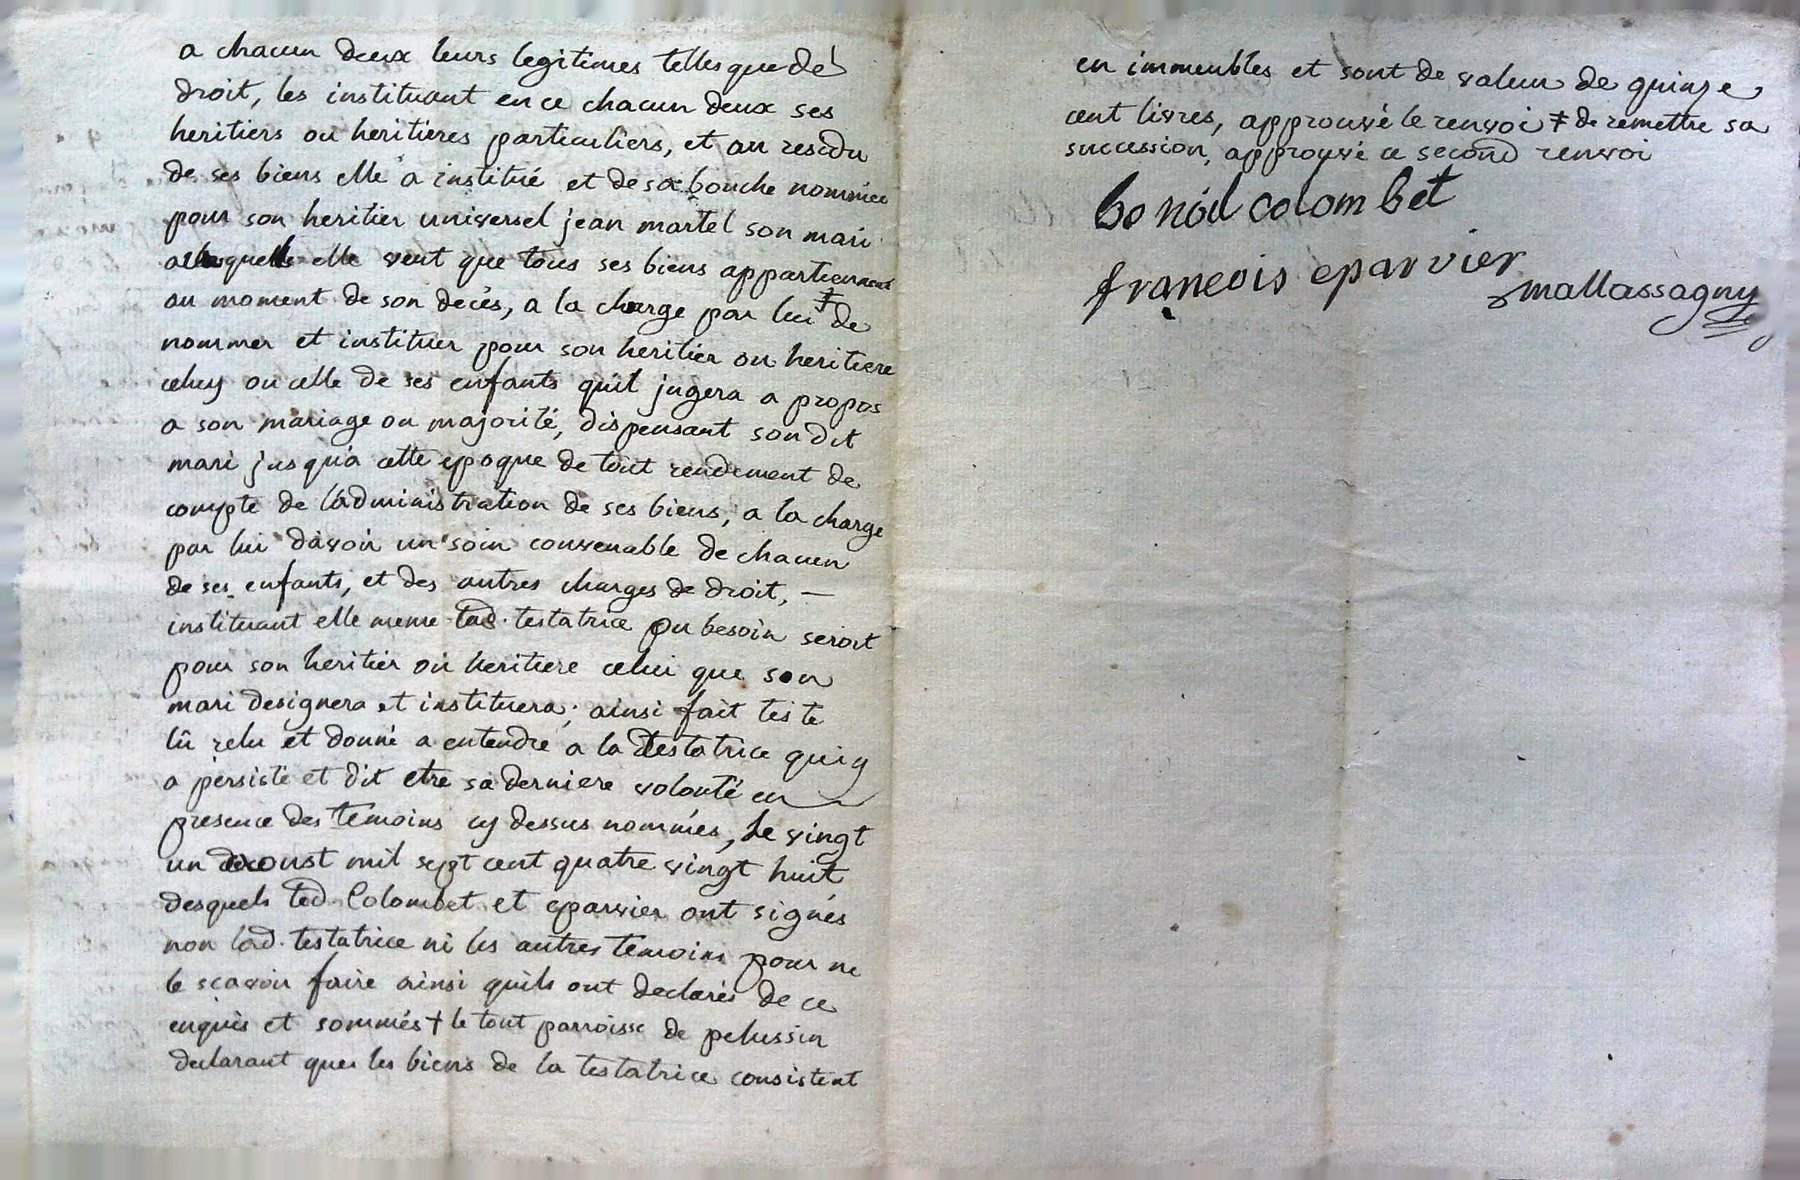 a chacun deux leurs legitimes telles que de
droit, les instituant en ce chacun deux ses
heritiers ou heritieres particuliers, et au residu
de ses biens elle a institué et de sa bouche nommée
pour son heritier universel jean martel son mari
elle veut que tous ses biens appartiennent
au moment de son decès, a la charge par lui ‡ de
nommer et instituer pour son heritier ou heritiere
celuy ou celle de ses enfants quil jugera a propos
a son mariage ou majorité, dispensant son dit
mari jusqua cette epoque de tout rendement de
compte de l'administration de ses biens, a la charge
par lui davoir un soin convenable de chacun
de ses enfants, et des autres charges de droit, —
instituant elle meme lad. testatrice ou besoin seroit
pour son heritier ou heritiere celui que son
mari designera et instituera; ainsi fait testé
lû relu et donné a entendre a la testatrice qui y
a persisté et dit etre sa derniere volonté en
presence des temoins cy dessus nommés, le vingt
un aoust mil sept cent quatre vingt huit
desquels led. Colombet et eparvier ont signés
non lad. testatrice ni les autres temoins pour ne
le scavoir faire ainsi quils ont declarés de ce
enquis et sommés † le tout parroisse de pelussin
declarant que les biens de la testatrice consistent
en immeubles et sont de valeur de quinze
cent livres, approuvé le renvoi ‡ de remettre sa
succession, approuvé ce second renvoi
colombet
françois eparvier
mallassagny